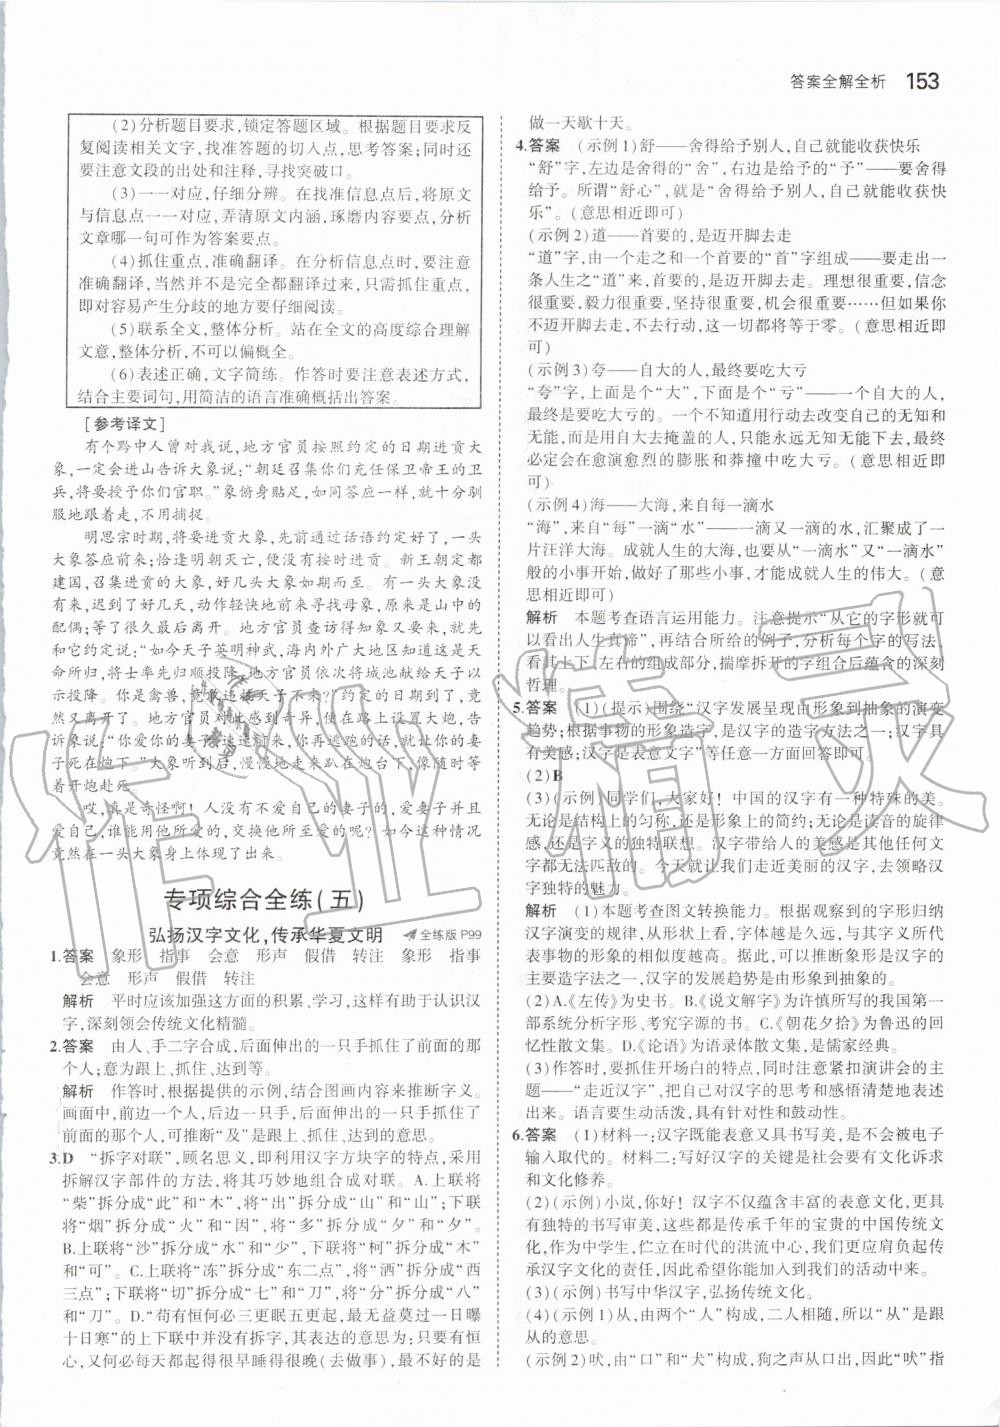 答案全解全析 153
(2)分析题目要求,锁定答题区域。根据题目要求反
复阅读相关文字,找准答题的切入点,思考答案;同时还
要注意文段的出处和注释,寻找突破口。
(3)一一对应,仔细分辨。在找准信息点后,将原文
与信息点一一对应,弄清原文内涵,琢磨内容要点,分析
文章哪一句可作为答案要点。
(4)抓住重点,准确翻译。在分析信息点时,要注意
准确翻译,当然并不是完全都翻译过来,只需抓住重点,
即对容易产生分歧的地方要仔细阅读。
(5)联系全文,整体分析。站在全文的高度综合理解
文意,整体分析,不可以偏概全。
(6)表述正确,文字简练。作答时要注意表述方式,
结合主要词句,用简洁的语言准确概括出答案。
[参考译文]
有个黔中人曾对我说,地方官员按照约定的日期进贡大
象,一定会进山告诉大象说:“朝廷召集你们充任保卫帝王的卫
兵,将要授予你们官职。”象俯身贴足,如同答应一样,就十分驯
服地跟着走,不用捕捉。
明思宗时期,将要进贡大象,先前通过话语约定好了,一头
大象答应前来;恰逢明朝灭亡,便没有按时进贡。新王朝定都
建国,召集进贡的大象,好几头大象如期而至。有一头大象没
有来,迟到了好几天,动作轻快地前来寻找母象,原来是山中的
配偶;等了很久最后召开。地方官员查访得知象又来了,就去
和它约定说:“如今天子英明神武,海内外广大地区知道这是天
命所归,将士率先归顺投降,地方官员依次将城池献给天子以
示投降。你是禽兽,竟敢违逆天子不来?”约定的日期到了,竟
然又离开了。地方官员对此感到奇异,便在路上设置大炮,告
诉象说:“你爱你的妻子可速速前来,你再逃跑的话,你的妻
子死在炮下。”大象听到后,慢慢地走来卧在炮台下,像随时等
着开炮赴死。
哎,真是奇怪啊!人没有不爱自己的妻子的,爱妻子并且
爱自己,谁能用他所爱的,交换他所至爱的呢?如今这种情况
竟然在一头大象身上体现了出来。
专项综合全练(五)
弘扬汉字文化,传承华夏文明 全练版 P99
1.答案 象形 指事 会意 形声 假借 转注 象形 指事
会意 形声 假借 转注
解析 平时应该加强这方面的积累、学习,这样有助于认识汉
字,深刻领会传统文化精髓。
2.答案 由人、手二字合成,后面伸出的一只手抓住了前面的那
个人;意为跟上、抓住、达到等。
解析 作答时,根据提供的示例,结合图画内容来推断字义。
画面中,前边一个人,后边一只手,后面伸出的一只手抓住了
前面的那个人,可推断“及”是跟上、抓住、达到的意思。
3.D “拆字对联”,顾名思义,即依据汉字方块字的特点,采用
拆解汉字部件的方法,将其巧妙地组合成对联。A.上联将
“柴”拆分成“此”和“木”,将“出”拆分成“山”和“山”;下联
将“烟”拆分成“火”和“因”,将“多”拆分成“夕”和“夕”。
B.上联将“沙”拆分成“水”和“少”,下联将“柯”拆分成“木”
和“可”。C.上联将“冻”拆分成“东二点”,将“洒”拆分成“西
三点”;下联将“切”拆分成“七”和“刀”,将“分”拆分成“八”
和“刀”。D.“苟有恒何必三更眠五更起,最无益莫过一日曝
十日寒”的上下联中并没有拆字,其表达的意思为:只要有恒
心,又何必每天都起得很早睡得很晚(去做事),最不好的是
做一天歇十天。
4.答案 (示例1)舒——舍得给予别人,自己就能收获快乐
“舒”字,左边是舍得的“舍”,右边是给予的“予”——要舍得
给予。所谓“舒心”,就是“舍得给予别人,自己就能收获快
乐”。(意思相近即可)
(示例2)道——首要的,是迈开脚去走
“道”字,由一个走之和一个首要的“首”字组成——要走出一
条人生之“道”来,首要的,是迈开脚去走。理想很重要,信念
很重要,毅力很重要,坚持很重要,梦想很重要……但如果你
不迈开脚去走,不去行动,这一切都将等于零。(意思相近即
可)
(示例3)夸——自大的人,最终要吃大亏
“夸”字,上面是个“大”,下面是个“亏”——一个自大的人,
最终是要吃大亏的。一个不知道用行动去改变自己的无知和
无能,而是用自大去掩盖的人,只能永远无知无能下去,最终
必定会在愈演愈烈的膨胀和莽撞中吃大亏。(意思相近即
可)
(示例4)海——大海,来自每一滴水
“海”,来自“每”一滴“水”——一滴又一滴的水,汇聚成了一
片汪洋大海。成就人生的大海,也要从“一滴水”又“一滴水”
般的小事开始,做好了那些小事,才能成就人生的伟大。(意
思相近即可)
解析 本题考查语言运用能力。注意提示“从它的字形就可
以看出人生真谛”,再结合所给的例子,分析每个字的写法,
看其上下、左右的组成部分,揣摩拆开的字组合后蕴含的深刻
哲理。
5.答案 (1)(提示)围绕“汉字发展呈现由形象到抽象的演变
趋势;根据事物的形象造字是汉字的造字方法之一;汉字具
有美感;汉字是表意文字”等任意一方面回答即可。
(2)B
(3)(示例)同学们,大家好!中国的汉字有一种特殊的美。
无论是结构上的匀称,还是形象上的简约;无论是读音的旋律
感,还是字义的独特联想。汉字带给人的美感是其他任何文
字都无法匹敌的。今天就让我们走近美丽的汉字,去领略汉
字独特的魅力。
解析 (1)本题考查图文转换能力。根据观察到的字形归纳
汉字演变的规律,从象形的角度看越是久远的汉字,与其字义所代
表的事物的形象的相似度越高。据此,可以推断象形是汉字的
主要造字法之一,汉字的发展趋势是由形象到抽象的。
(2)A.《左传》为史书。B.《说文解字》为许慎所写的我国第一
部系统分析字形、考究字源的书。C.《朝花夕拾》是鲁迅的回
忆性散文集。D.《论语》为语录体散文集,是儒家经典。
(3)作答时,要抓住开场白的特点,同时注意紧扣演讲会的主
题——“走近汉字”,把自己对汉字的思考和感悟清楚地表述
出来。语言要生动活泼,具有针对性和鼓动性。
6.答案 (1)材料一:汉字既能表意又具书写美,是不会被电子
输入取代的。材料二:写好汉字的关键是社会要有文化诉求
和文化修养。
(2)(示例)小岚,你好!汉字不仅蕴含丰富的表意文化,更具
有独特的书写审美,这些都是传承千年的宝贵的中国传统文
化,作为中学生,伫立在时代的洪流中心,我们更应肩负起传
承汉字文化的责任,因此希望你能加入到我们的活动中来。
(3)(示例)书写中华汉字,弘扬传统文化。
(4)(示例1)从,由两个“人”构成,二人相随,所以“从”是跟
从的意思。
(示例2)吠,由“口”和“犬”构成,狗之声从口出,因此“吠”指
作业精灵